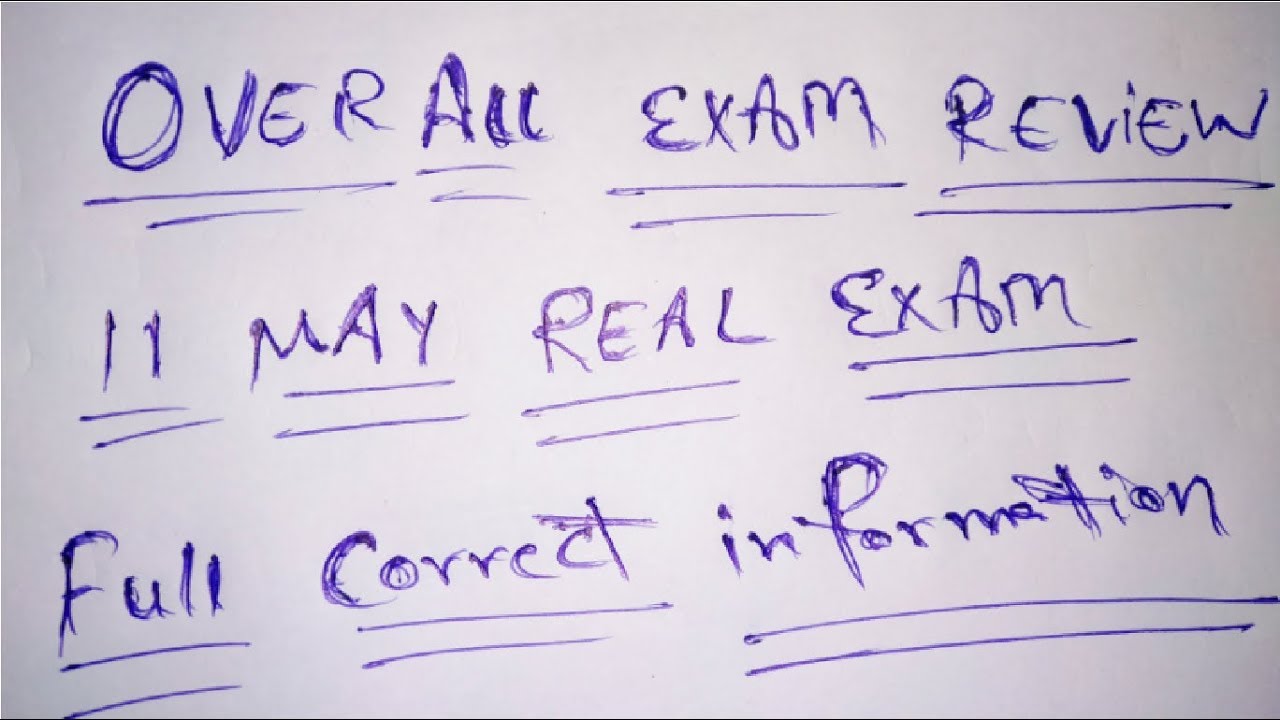 OVER All EXAM REViEW
11 MAY REAL EXAM
Full Correct information